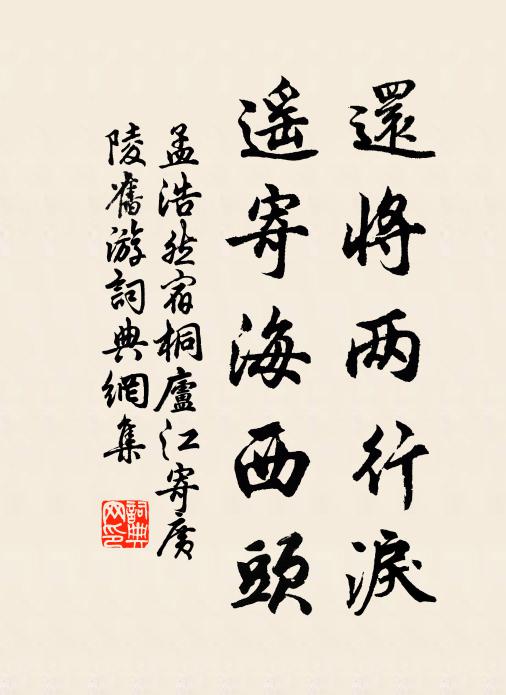 還將两行淚
遥寄海西頭
孟浩然宿桐廬江寄廣
陵舊游詞典網集
詞典
网印